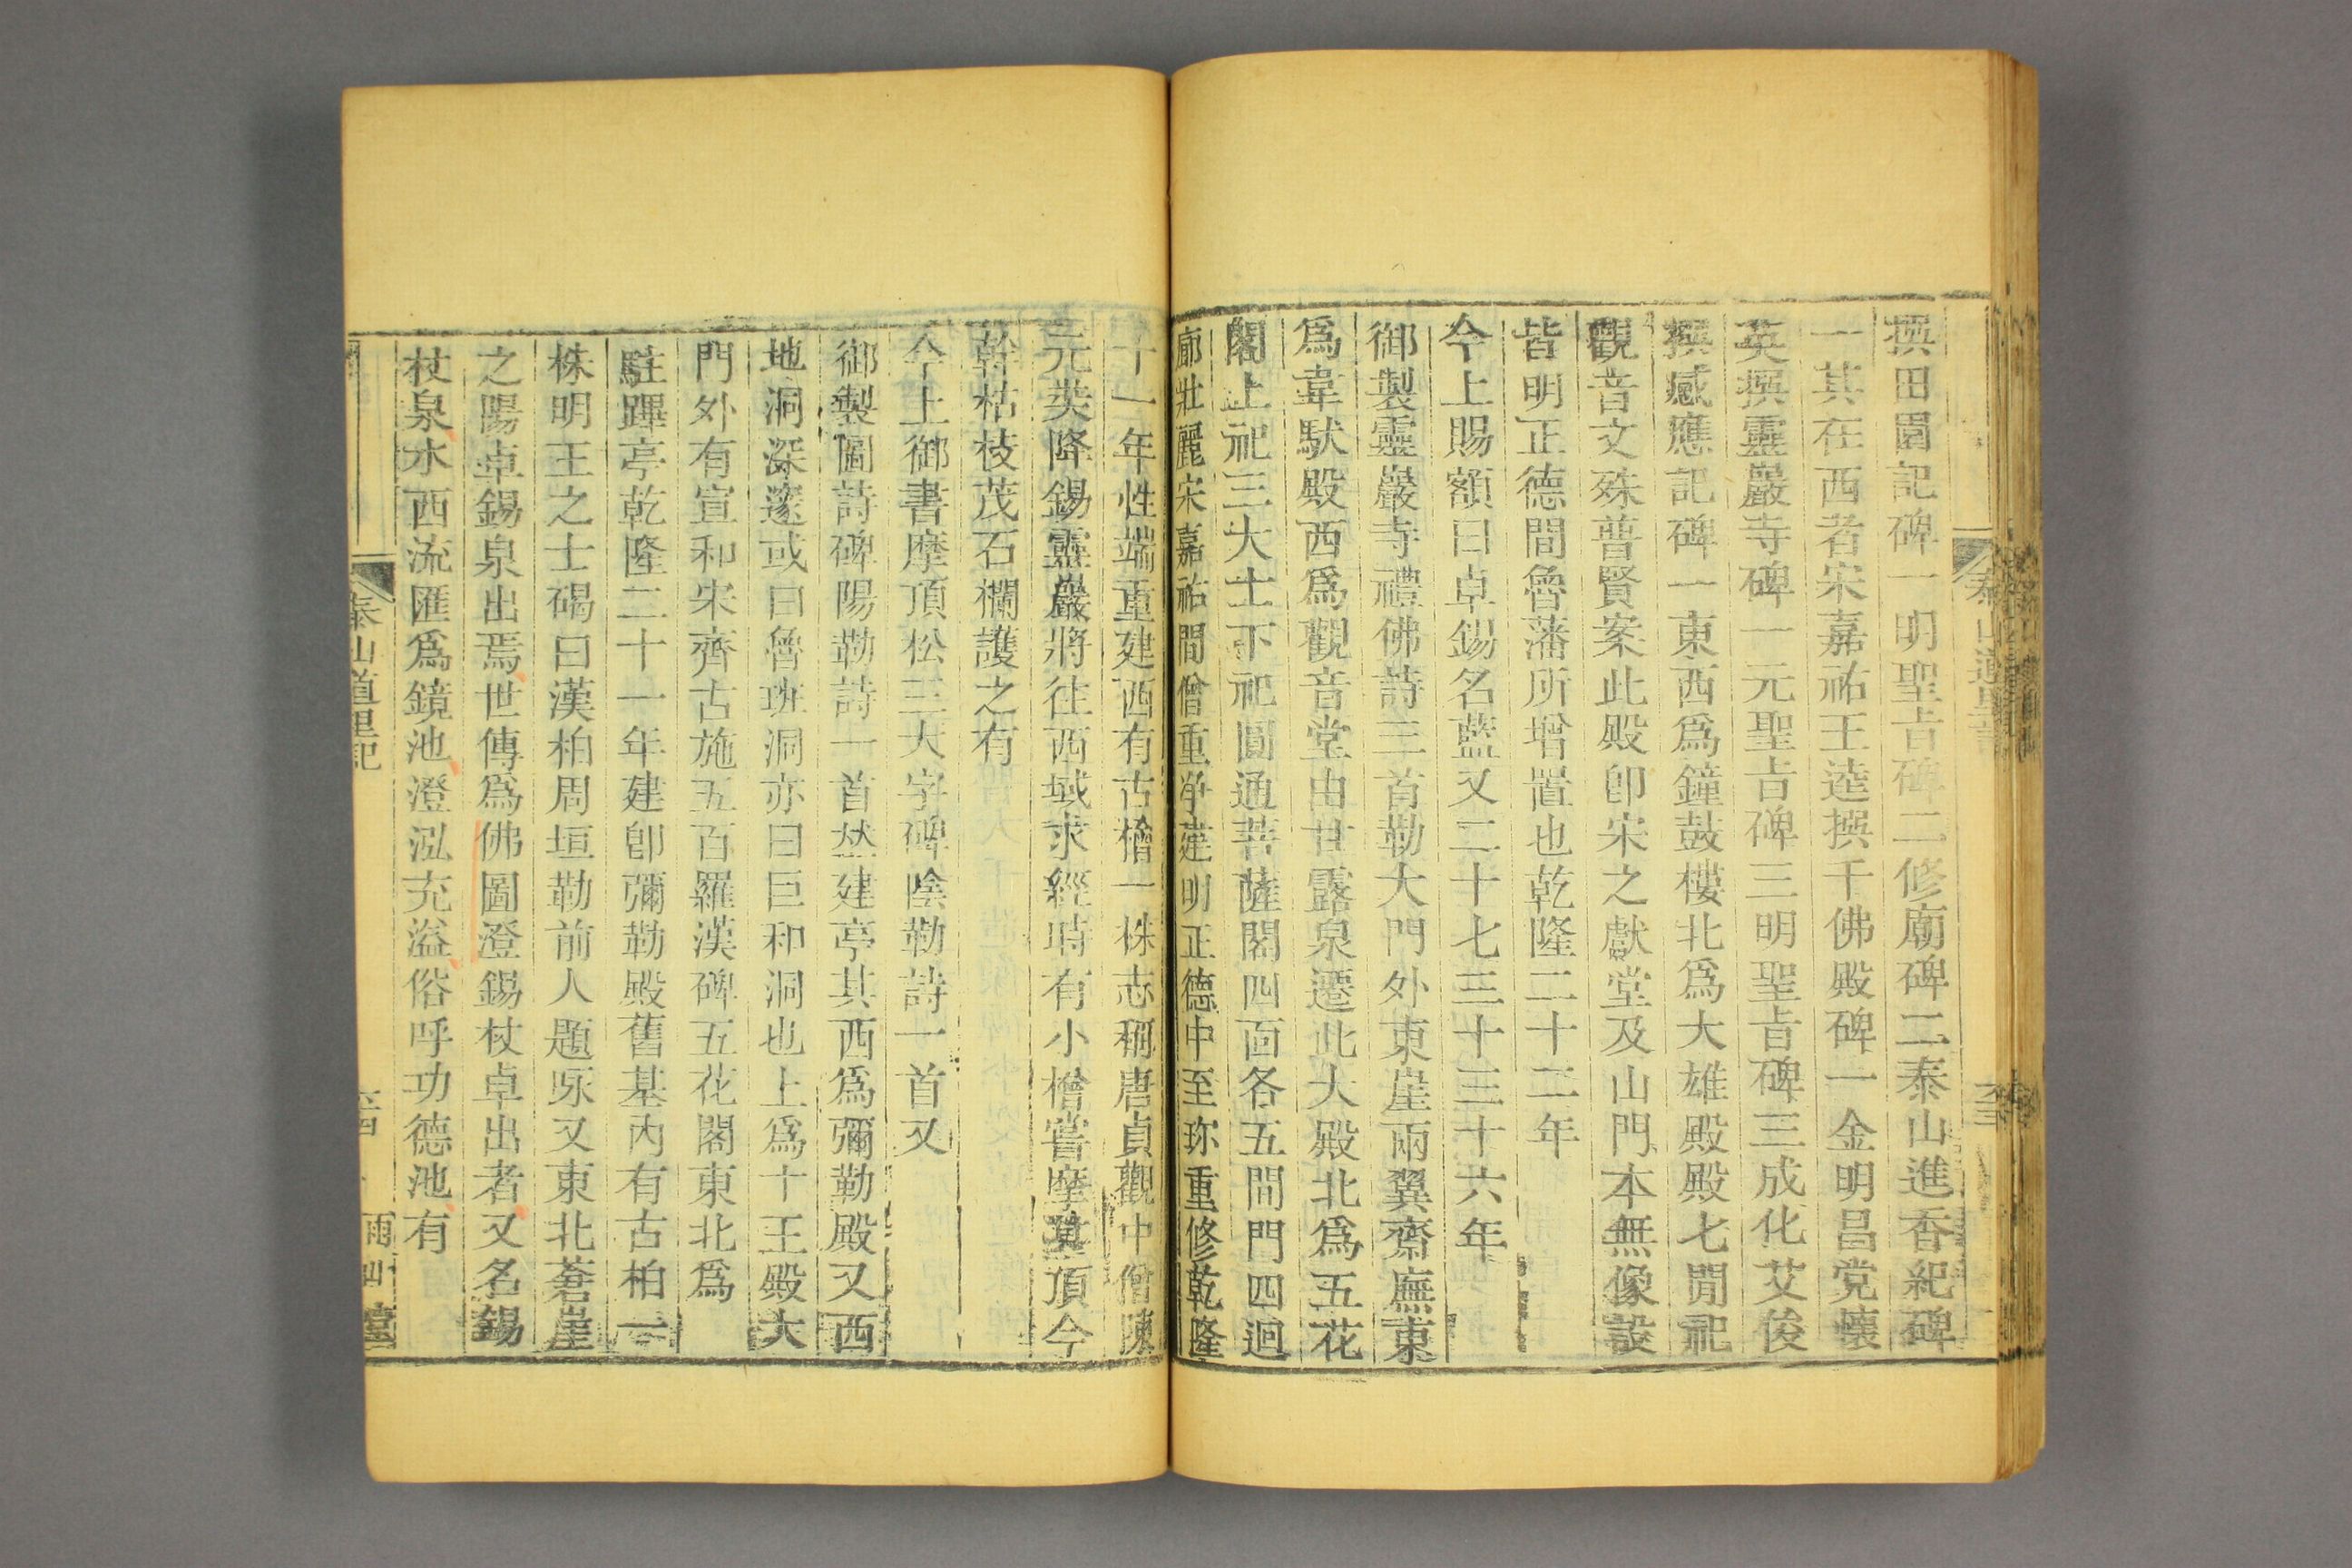 撰田園記碑一明聖旨碑二修廟碑二泰山進香紀碑
一其在西者宋嘉祐王逵撰千佛殿碑一金明昌党懷
英撰靈巖寺碑一元聖旨碑三明聖旨碑三成化艾俊
撰感應記碑一東西爲鐘鼓樓北爲大雄殿殿七閒祀
觀音文殊普賢案此殿卽宋之獻堂及山門本無像設
皆明正德間魯藩所增置也乾隆二十二年
今上賜額曰卓錫名藍又二十七三十三十六年
御製靈巖寺禮佛詩三首勒大門外東崖兩翼齋廡東
爲韋馱殿西爲觀音堂由甘露泉遷此大殿北爲五花
閣上祀三大士下祀圓通菩薩閣四面各五間門四迴
廊壯麗宋嘉祐間僧重淨建明正德中至珎重修乾隆
十一年性端重建西有古檜一株志稱唐貞觀中僧陳
元奘降錫靈巖將往西域求經時有小檜嘗摩其頂今
幹枯枝茂石欄護之有
今上御書摩頂松三大字碑陰勒詩一首又
御製圖詩碑陽勒詩一首並建亭其西爲彌勒殿又西
地洞深邃或曰魯班洞亦曰巨和洞也上爲十王殿大
門外有宣和宋齊古施五百羅漢碑五花閣東北爲
駐蹕亭乾隆二十一年建卽彌勒殿舊基內有古柏一
株明王之士碣曰漢柏周垣勒前人題咏又東北蒼崖
之陽卓錫泉出焉世傳爲佛圖澄錫杖卓出者又名錫
杖泉水西流匯爲鏡池澄泓充溢俗呼功德池有
泰山道里記
雨山堂